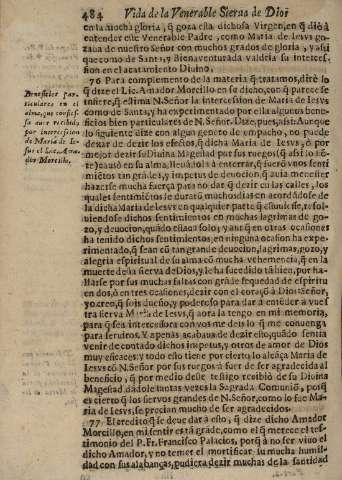 484 Vida de la Venerable Sierua de Dios
en la mucha gloria, q̃ goza esta dichosa Virgen, en q̃ dió à
entender este Venerable Padre, como Maria de Iesvs go-
zaua de nuestro Señor con muchos grados de gloria, y assi
que como de Santa, y Bienaventurada valdria su interces-
sion en el acatamiento Diuino.
76 Para complemento de la materia q̃ tratamos, diré lo
q̃ dize el Lic. Amador Morcillo en su dicho, con q̃ parece se
Beneficios par-
ticulares en el
alma, que confies-
sa auer recibido
por intercession
de Maria de Ie-
sus el Lic. Ama-
dor Morcillo.
infiere, q̃ estima N. Señor la intercession de Maria de Iesvs
como de Santa, y ha experimentado por ella algunos bene-
ficios bien particulares de N. Señor. Dize, pues, assi: Aunque
lo siguiente dize con algun genero de empacho, no puede
dexar de dezir los efectos, q̃ dicha Maria de Iesvs, ò por
mejor dezir su Diuina Magestad por sus ruegos (q̃ assi lo sié-
te) ha causado en su alma, lleuandola à enterrar, q̃ fueron vnos senti
miẽtos tan grandes, y impetus de deuocion, q̃ auia menester
hazerse mucha fuerça para no dar q̃ dezir en las calles, los
quales sentimiẽtos le duraron muchos dias en acordandose de
la dicha Maria de Iesvs en qualquier parte q̃ estuuiesse, resol-
uiendose dichos sentimientos en muchas lagrimas de go-
zo, y deuocion, quãdo estaua solo; y aunq̃ en otras ocasiones
ha tenido dichos sentimientos, en ninguna ocasion ha expe-
rimentado, q̃ sean cõ tan grande deuocion, lagrimas, gozo, y
alegria espiritual de su alma cõ mucha vehemencia, q̃ en la
muerte de la sierva de Dios, y le ha sucedido tãbien, por ha-
llarse por sus muchas faltas con grãde sequedad de espiritu
en dos, ò en tres ocasiones, dezir con el coraçõ à Dios: Señor,
yo creo, q̃ sois dueño, y poderoso para dar à entẽder à vues-
tra Sierva Maria de Iesvs, q̃ aora la tengo en mi memoria,
para q̃ sea intercessora con vos me deis lo q̃ me conuenga
para seruiros. Y apenas acabaua de dezir esto, quãdo sentia
venir de contado dichos impetus, y otros de amor de Dios
muy eficaces: y todo esto tiene por cierto lo alcãça Maria de
Iesvs cõ N. Señor por sus ruegos à fuer de ser agradecida al
beneficio, q̃ por medio deste testigo recibió de su Diuina
Magestad, dãdole tantas vezes la Sagrada Comuniõ, porq̃
es cierto q̃ los siervos grandes de N. Señor, como lo fue Ma-
ria de Iesvs, se precian mucho de ser agradecidos.
77 El credito q̃ se deue dar à esto, q̃ dize dicho Amador
Morcillo, en mi sentir está grade, como el q̃ merece el tes-
timonio del P. Fr. Francisco Palacios, porq̃ à no ser viuo el
dicho Amador, y no temer el mortificar su mucha humil-
dad con sus alabanças, pudiera dezir muchas de la santidad